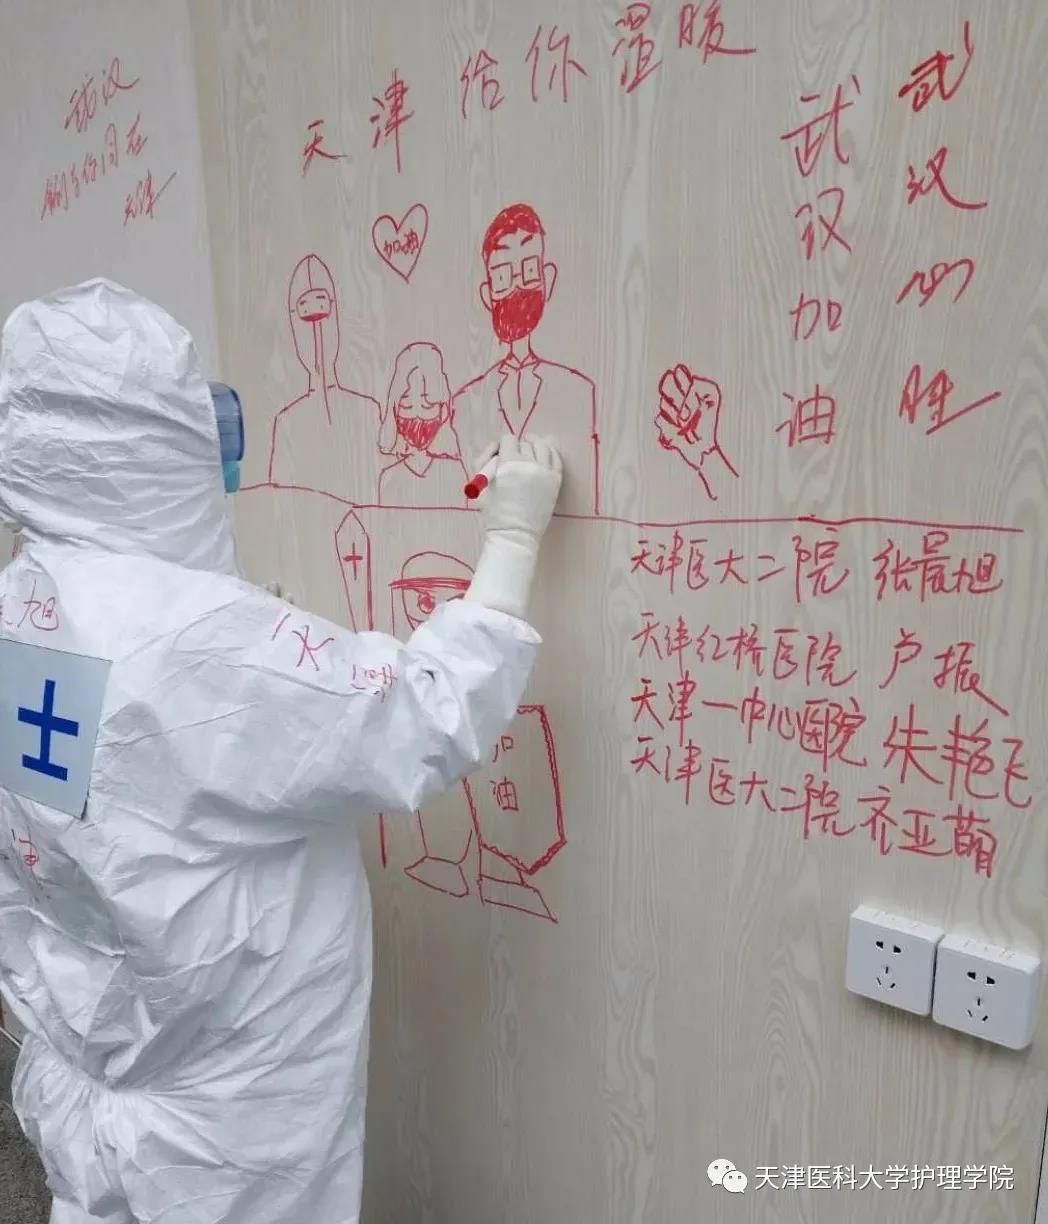 天津给你温暖
武汉加油
武汉必胜
武汉
我们与你同在
天津
加油
天津医大二院 张晨旭
天津红桥医院 卢振
天津一中心医院 朱艳飞
天津医大二院 齐亚萌
加油
旭
天津医科大学护理学院